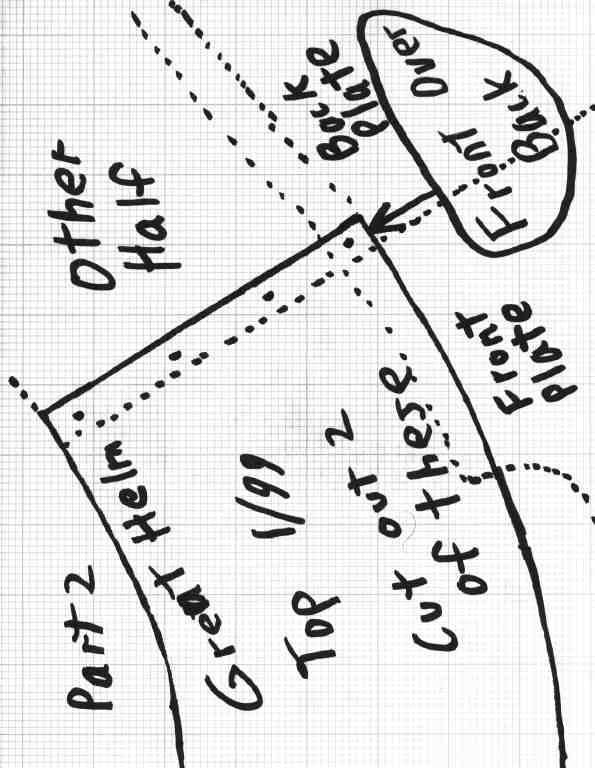 Part 2
Other
Half
Great Helm
Top 1/99
Cut out 2
of these
Back
Plate
Front Over
Back
Front
Plate